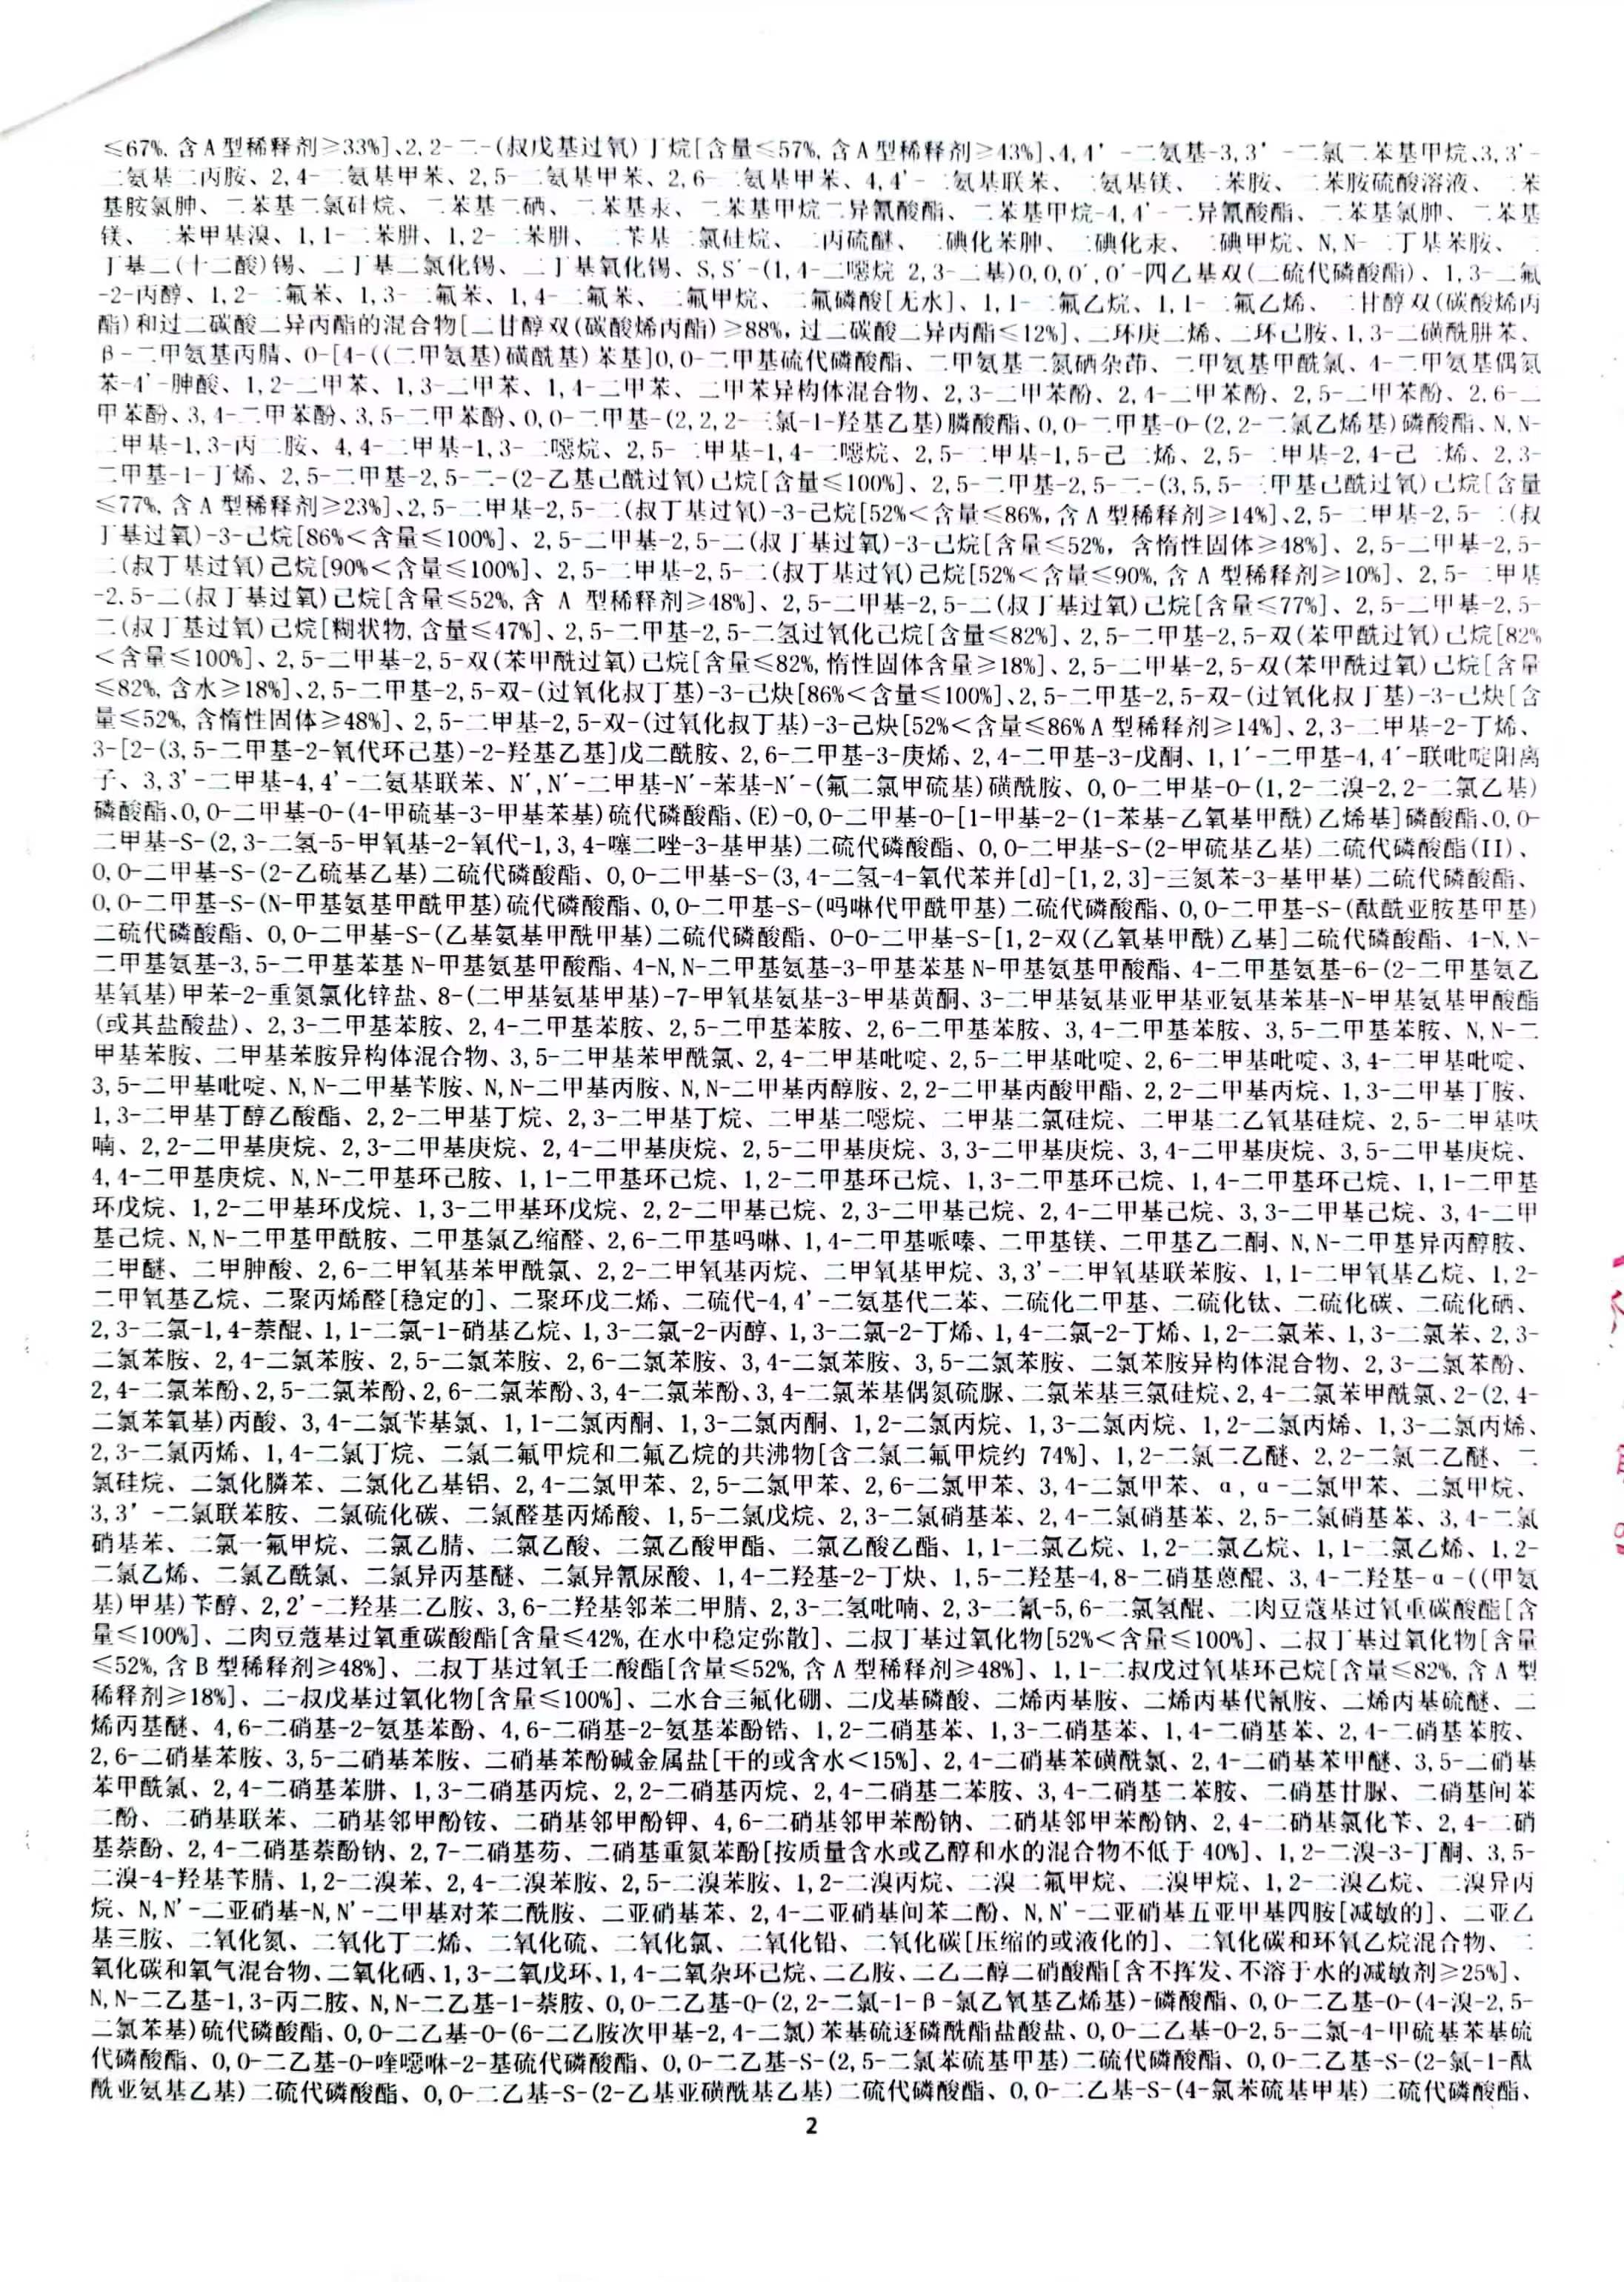 ≤67%,含A型稀释剂≥33%]、2,2-二-(叔戊基过氧)丁烷[含量≤57%,含A型稀释剂≥43%]、4,4'-二氨基-3,3'-二氯二苯基甲烷、3,3'-
二氨基二丙胺、2,4-二氨基甲苯、2,5-二氨基甲苯、2,6-二氨基甲苯、4,4'-二氨基联苯、二氨基镁、二苯胺、二苯胺硫酸溶液、二苯
基胺氯胂、二苯基二氯硅烷、二苯基二硒、二苯基汞、二苯基甲烷二异氰酸酯、二苯基甲烷-4,4'-二异氰酸酯、二苯基氯胂、二苯基
镁、二苯甲基溴、1,1-二苯肼、1,2-二苯肼、二苄基二氯硅烷、二丙硫醚、二碘化苯胂、二碘化汞、二碘甲烷、N,N-二丁基苯胺、二
丁基二(十二酸)锡、二丁基二氯化锡、二丁基氧化锡、S,S′-(1,4-二噁烷 2,3-二基)O,O,O′,O′-四乙基双(二硫代磷酸酯)、1,3-二氟
-2-丙醇、1,2-二氟苯、1,3-二氟苯、1,4-二氟苯、二氟甲烷、二氟磷酸[无水]、1,1-二氟乙烷、1,1-二氟乙烯、二甘醇双(碳酸烯丙
酯)和过二碳酸二异丙酯的混合物[二甘醇双(碳酸烯丙酯)≥88%,过二碳酸二异丙酯≤12%]、二环庚二烯、二环己胺、1,3-二磺酰肼苯、
β-二甲氨基丙腈、O-[4-((二甲氨基)磺酰基)苯基]O,O-二甲基硫代磷酸酯、二甲氨基二氮硒杂茚、二甲氨基甲酰氯、4-二甲氨基偶氮
苯-4'-胂酸、1,2-二甲苯、1,3-二甲苯、1,4-二甲苯、二甲苯异构体混合物、2,3-二甲苯酚、2,4-二甲苯酚、2,5-二甲苯酚、2,6-二
甲苯酚、3,4-二甲苯酚、3,5-二甲苯酚、O,O-二甲基-(2,2,2-三氯-1-羟基乙基)膦酸酯、O,O-二甲基-O-(2,2-二氯乙烯基)磷酸酯、N,N-
二甲基-1,3-丙二胺、4,4-二甲基-1,3-二噁烷、2,5-二甲基-1,4-二噁烷、2,5-二甲基-1,5-己二烯、2,5-二甲基-2,4-己二烯、2,3-
二甲基-1-丁烯、2,5-二甲基-2,5-二-(2-乙基己酰过氧)己烷[含量≤100%]、2,5-二甲基-2,5-二-(3,5,5-三甲基己酰过氧)己烷[含量
≤77%,含A型稀释剂≥23%]、2,5-二甲基-2,5-二(叔丁基过氧)-3-己烷[52%<含量≤86%,含A型稀释剂≥14%]、2,5-二甲基-2,5-二(叔
丁基过氧)-3-己烷[86%<含量≤100%]、2,5-二甲基-2,5-二(叔丁基过氧)-3-己烷[含量≤52%,含惰性固体≥48%]、2,5-二甲基-2,5-
二(叔丁基过氧)己烷[90%<含量≤100%]、2,5-二甲基-2,5-二(叔丁基过氧)己烷[52%<含量≤90%,含A型稀释剂≥10%]、2,5-二甲基
-2,5-二(叔丁基过氧)己烷[含量≤52%,含 A 型稀释剂≥48%]、2,5-二甲基-2,5-二(叔丁基过氧)己烷[含量≤77%]、2,5-二甲基-2,5-
二(叔丁基过氧)己烷[糊状物,含量≤47%]、2,5-二甲基-2,5-二氢过氧化己烷[含量≤82%]、2,5-二甲基-2,5-双(苯甲酰过氧)己烷[82%
<含量≤100%]、2,5-二甲基-2,5-双(苯甲酰过氧)己烷[含量≤82%,惰性固体含量≥18%]、2,5-二甲基-2,5-双(苯甲酰过氧)己烷[含量
≤82%,含水≥18%]、2,5-二甲基-2,5-双-(过氧化叔丁基)-3-己炔[86%<含量≤100%]、2,5-二甲基-2,5-双-(过氧化叔丁基)-3-己炔[含
量≤52%,含惰性固体≥48%]、2,5-二甲基-2,5-双-(过氧化叔丁基)-3-己炔[52%<含量≤86%A型稀释剂≥14%]、2,3-二甲基-2-丁烯、
3-[2-(3,5-二甲基-2-氧代环己基)-2-羟基乙基]戊二酰胺、2,6-二甲基-3-庚烯、2,4-二甲基-3-戊酮、1,1′-二甲基-4,4′-联吡啶阳离
子、3,3'-二甲基-4,4'-二氨基联苯、N′,N′-二甲基-N′-苯基-N′-(氟二氯甲硫基)磺酰胺、O,O-二甲基-O-(1,2-二溴-2,2-二氯乙基)
磷酸酯、O,O-二甲基-O-(4-甲硫基-3-甲基苯基)硫代磷酸酯、(E)-O,O-二甲基-O-[1-甲基-2-(1-苯基-乙氧基甲酰)乙烯基]磷酸酯、O,O-
二甲基-S-(2,3-二氢-5-甲氧基-2-氧代-1,3,4-噻二唑-3-基甲基)二硫代磷酸酯、O,O-二甲基-S-(2-甲硫基乙基)二硫代磷酸酯(II)、
O,O-二甲基-S-(2-乙硫基乙基)二硫代磷酸酯、O,O-二甲基-S-(3,4-二氢-4-氧代苯并[d]-[1,2,3]-三氮苯-3-基甲基)二硫代磷酸酯、
O,O-二甲基-S-(N-甲基氨基甲酰甲基)硫代磷酸酯、O,O-二甲基-S-(吗啉代甲酰甲基)二硫代磷酸酯、O,O-二甲基-S-(酞酰亚胺基甲基)
二硫代磷酸酯、O,O-二甲基-S-(乙基氨基甲酰甲基)二硫代磷酸酯、O-O-二甲基-S-[1,2-双(乙氧基甲酰)乙基]二硫代磷酸酯、4-N,N-
二甲基氨基-3,5-二甲基苯基N-甲基氨基甲酸酯、4-N,N-二甲基氨基-3-甲基苯基N-甲基氨基甲酸酯、4-二甲基氨基-6-(2-二甲基氨乙
基氧基)甲苯-2-重氮氯化锌盐、8-(二甲基氨基甲基)-7-甲氧基氨基-3-甲基黄酮、3-二甲基氨基亚甲基亚氨基苯基-N-甲基氨基甲酸酯
(或其盐酸盐)、2,3-二甲基苯胺、2,4-二甲基苯胺、2,5-二甲基苯胺、2,6-二甲基苯胺、3,4-二甲基苯胺、3,5-二甲基苯胺、N,N-二
甲基苯胺、二甲基苯胺异构体混合物、3,5-二甲基苯甲酰氯、2,4-二甲基吡啶、2,5-二甲基吡啶、2,6-二甲基吡啶、3,4-二甲基吡啶、
3,5-二甲基吡啶、N,N-二甲基苄胺、N,N-二甲基丙胺、N,N-二甲基丙醇胺、2,2-二甲基丙酸甲酯、2,2-二甲基丙烷、1,3-二甲基丁胺、
1,3-二甲基丁醇乙酸酯、2,2-二甲基丁烷、2,3-二甲基丁烷、二甲基二噁烷、二甲基二氯硅烷、二甲基二乙氧基硅烷、2,5-二甲基呋
喃、2,2-二甲基庚烷、2,3-二甲基庚烷、2,4-二甲基庚烷、2,5-二甲基庚烷、3,3-二甲基庚烷、3,4-二甲基庚烷、3,5-二甲基庚烷、
4,4-二甲基庚烷、N,N-二甲基环己胺、1,1-二甲基环己烷、1,2-二甲基环己烷、1,3-二甲基环己烷、1,4-二甲基环己烷、1,1-二甲基
环戊烷、1,2-二甲基环戊烷、1,3-二甲基环戊烷、2,2-二甲基己烷、2,3-二甲基己烷、2,4-二甲基己烷、3,3-二甲基己烷、3,4-二甲
基己烷、N,N-二甲基甲酰胺、二甲基氯乙缩醛、2,6-二甲基吗啉、1,4-二甲基哌嗪、二甲基镁、二甲基乙二酮、N,N-二甲基异丙醇胺、
二甲醚、二甲胂酸、2,6-二甲氧基苯甲酰氯、2,2-二甲氧基丙烷、二甲氧基甲烷、3,3'-二甲氧基联苯胺、1,1-二甲氧基乙烷、1,2-
二甲氧基乙烷、二聚丙烯醛[稳定的]、二聚环戊二烯、二硫代-4,4'-二氨基代二苯、二硫化二甲基、二硫化钛、二硫化碳、二硫化硒、
2,3-二氯-1,4-萘醌、1,1-二氯-1-硝基乙烷、1,3-二氯-2-丙醇、1,3-二氯-2-丁烯、1,4-二氯-2-丁烯、1,2-二氯苯、1,3-二氯苯、2,3-
二氯苯胺、2,4-二氯苯胺、2,5-二氯苯胺、2,6-二氯苯胺、3,4-二氯苯胺、3,5-二氯苯胺、二氯苯胺异构体混合物、2,3-二氯苯酚、
2,4-二氯苯酚、2,5-二氯苯酚、2,6-二氯苯酚、3,4-二氯苯酚、3,4-二氯苯基偶氮硫脲、二氯苯基三氯硅烷、2,4-二氯苯甲酰氯、2-(2,4-
二氯苯氧基)丙酸、3,4-二氯苄基氯、1,1-二氯丙酮、1,3-二氯丙酮、1,2-二氯丙烷、1,3-二氯丙烷、1,2-二氯丙烯、1,3-二氯丙烯、
2,3-二氯丙烯、1,4-二氯丁烷、二氯二氟甲烷和二氟乙烷的共沸物[含二氯二氟甲烷约 74%]、1,2-二氯二乙醚、2,2-二氯二乙醚、二
氯硅烷、二氯化膦苯、二氯化乙基铝、2,4-二氯甲苯、2,5-二氯甲苯、2,6-二氯甲苯、3,4-二氯甲苯、α,α-二氯甲苯、二氯甲烷、
3,3'-二氯联苯胺、二氯硫化碳、二氯醛基丙烯酸、1,5-二氯戊烷、2,3-二氯硝基苯、2,4-二氯硝基苯、2,5-二氯硝基苯、3,4-二氯
硝基苯、二氯一氟甲烷、二氯乙腈、二氯乙酸、二氯乙酸甲酯、二氯乙酸乙酯、1,1-二氯乙烷、1,2-二氯乙烷、1,1-二氯乙烯、1,2-
二氯乙烯、二氯乙酰氯、二氯异丙基醚、二氯异氰尿酸、1,4-二羟基-2-丁炔、1,5-二羟基-4,8-二硝基蒽醌、3,4-二羟基-α-((甲氨
基)甲基)苄醇、2,2'-二羟基二乙胺、3,6-二羟基邻苯二甲腈、2,3-二氢吡喃、2,3-二氰-5,6-二氯氢醌、二肉豆蔻基过氧重碳酸酯[含
量≤100%]、二肉豆蔻基过氧重碳酸酯[含量≤42%,在水中稳定弥散]、二叔丁基过氧化物[52%<含量≤100%]、二叔丁基过氧化物[含量
≤52%,含B型稀释剂≥48%]、二叔丁基过氧壬二酸酯[含量≤52%,含A型稀释剂≥48%]、1,1-二叔戊过氧基环己烷[含量≤82%,含A型
稀释剂≥18%]、二-叔戊基过氧化物[含量≤100%]、二水合三氟化硼、二戊基磷酸、二烯丙基胺、二烯丙基代氰胺、二烯丙基硫醚、二
烯丙基醚、4,6-二硝基-2-氨基苯酚、4,6-二硝基-2-氨基苯酚锆、1,2-二硝基苯、1,3-二硝基苯、1,4-二硝基苯、2,4-二硝基苯胺、
2,6-二硝基苯胺、3,5-二硝基苯胺、二硝基苯酚碱金属盐[干的或含水<15%]、2,4-二硝基苯磺酰氯、2,4-二硝基苯甲醚、3,5-二硝基
苯甲酰氯、2,4-二硝基苯肼、1,3-二硝基丙烷、2,2-二硝基丙烷、2,4-二硝基二苯胺、3,4-二硝基二苯胺、二硝基甘脲、二硝基间苯
二酚、二硝基联苯、二硝基邻甲酚铵、二硝基邻甲酚钾、4,6-二硝基邻甲苯酚钠、二硝基邻甲苯酚钠、2,4-二硝基氯化苄、2,4-二硝
基萘酚、2,4-二硝基萘酚钠、2,7-二硝基芴、二硝基重氮苯酚[按质量含水或乙醇和水的混合物不低于40%]、1,2-二溴-3-丁酮、3,5-
二溴-4-羟基苄腈、1,2-二溴苯、2,4-二溴苯胺、2,5-二溴苯胺、1,2-二溴丙烷、二溴二氟甲烷、二溴甲烷、1,2-二溴乙烷、二溴异丙
烷、N,N'-二亚硝基-N,N'-二甲基对苯二酰胺、二亚硝基苯、2,4-二亚硝基间苯二酚、N,N'-二亚硝基五亚甲基四胺[减敏的]、二亚乙
基三胺、二氧化氮、二氧化丁二烯、二氧化硫、二氧化氯、二氧化铅、二氧化碳[压缩的或液化的]、二氧化碳和环氧乙烷混合物、二
氧化碳和氧气混合物、二氧化硒、1,3-二氧戊环、1,4-二氧杂环己烷、二乙胺、二乙二醇二硝酸酯[含不挥发、不溶于水的减敏剂≥25%]、
N,N-二乙基-1,3-丙二胺、N,N-二乙基-1-萘胺、O,O-二乙基-O-(2,2-二氯-1-β-氯乙氧基乙烯基)-磷酸酯、O,O-二乙基-O-(4-溴-2,5-
二氯苯基)硫代磷酸酯、O,O-二乙基-O-(6-二乙胺次甲基-2,4-二氯)苯基硫逐磷酰酯盐酸盐、O,O-二乙基-O-2,5-二氯-4-甲硫基苯基硫
代磷酸酯、O,O-二乙基-O-喹噁啉-2-基硫代磷酸酯、O,O-二乙基-S-(2,5-二氯苯硫基甲基)二硫代磷酸酯、O,O-二乙基-S-(2-氯-1-酞
酰亚氨基乙基)二硫代磷酸酯、O,O-二乙基-S-(2-乙基亚磺酰基乙基)二硫代磷酸酯、O,O-二乙基-S-(4-氯苯硫基甲基)二硫代磷酸酯、
2